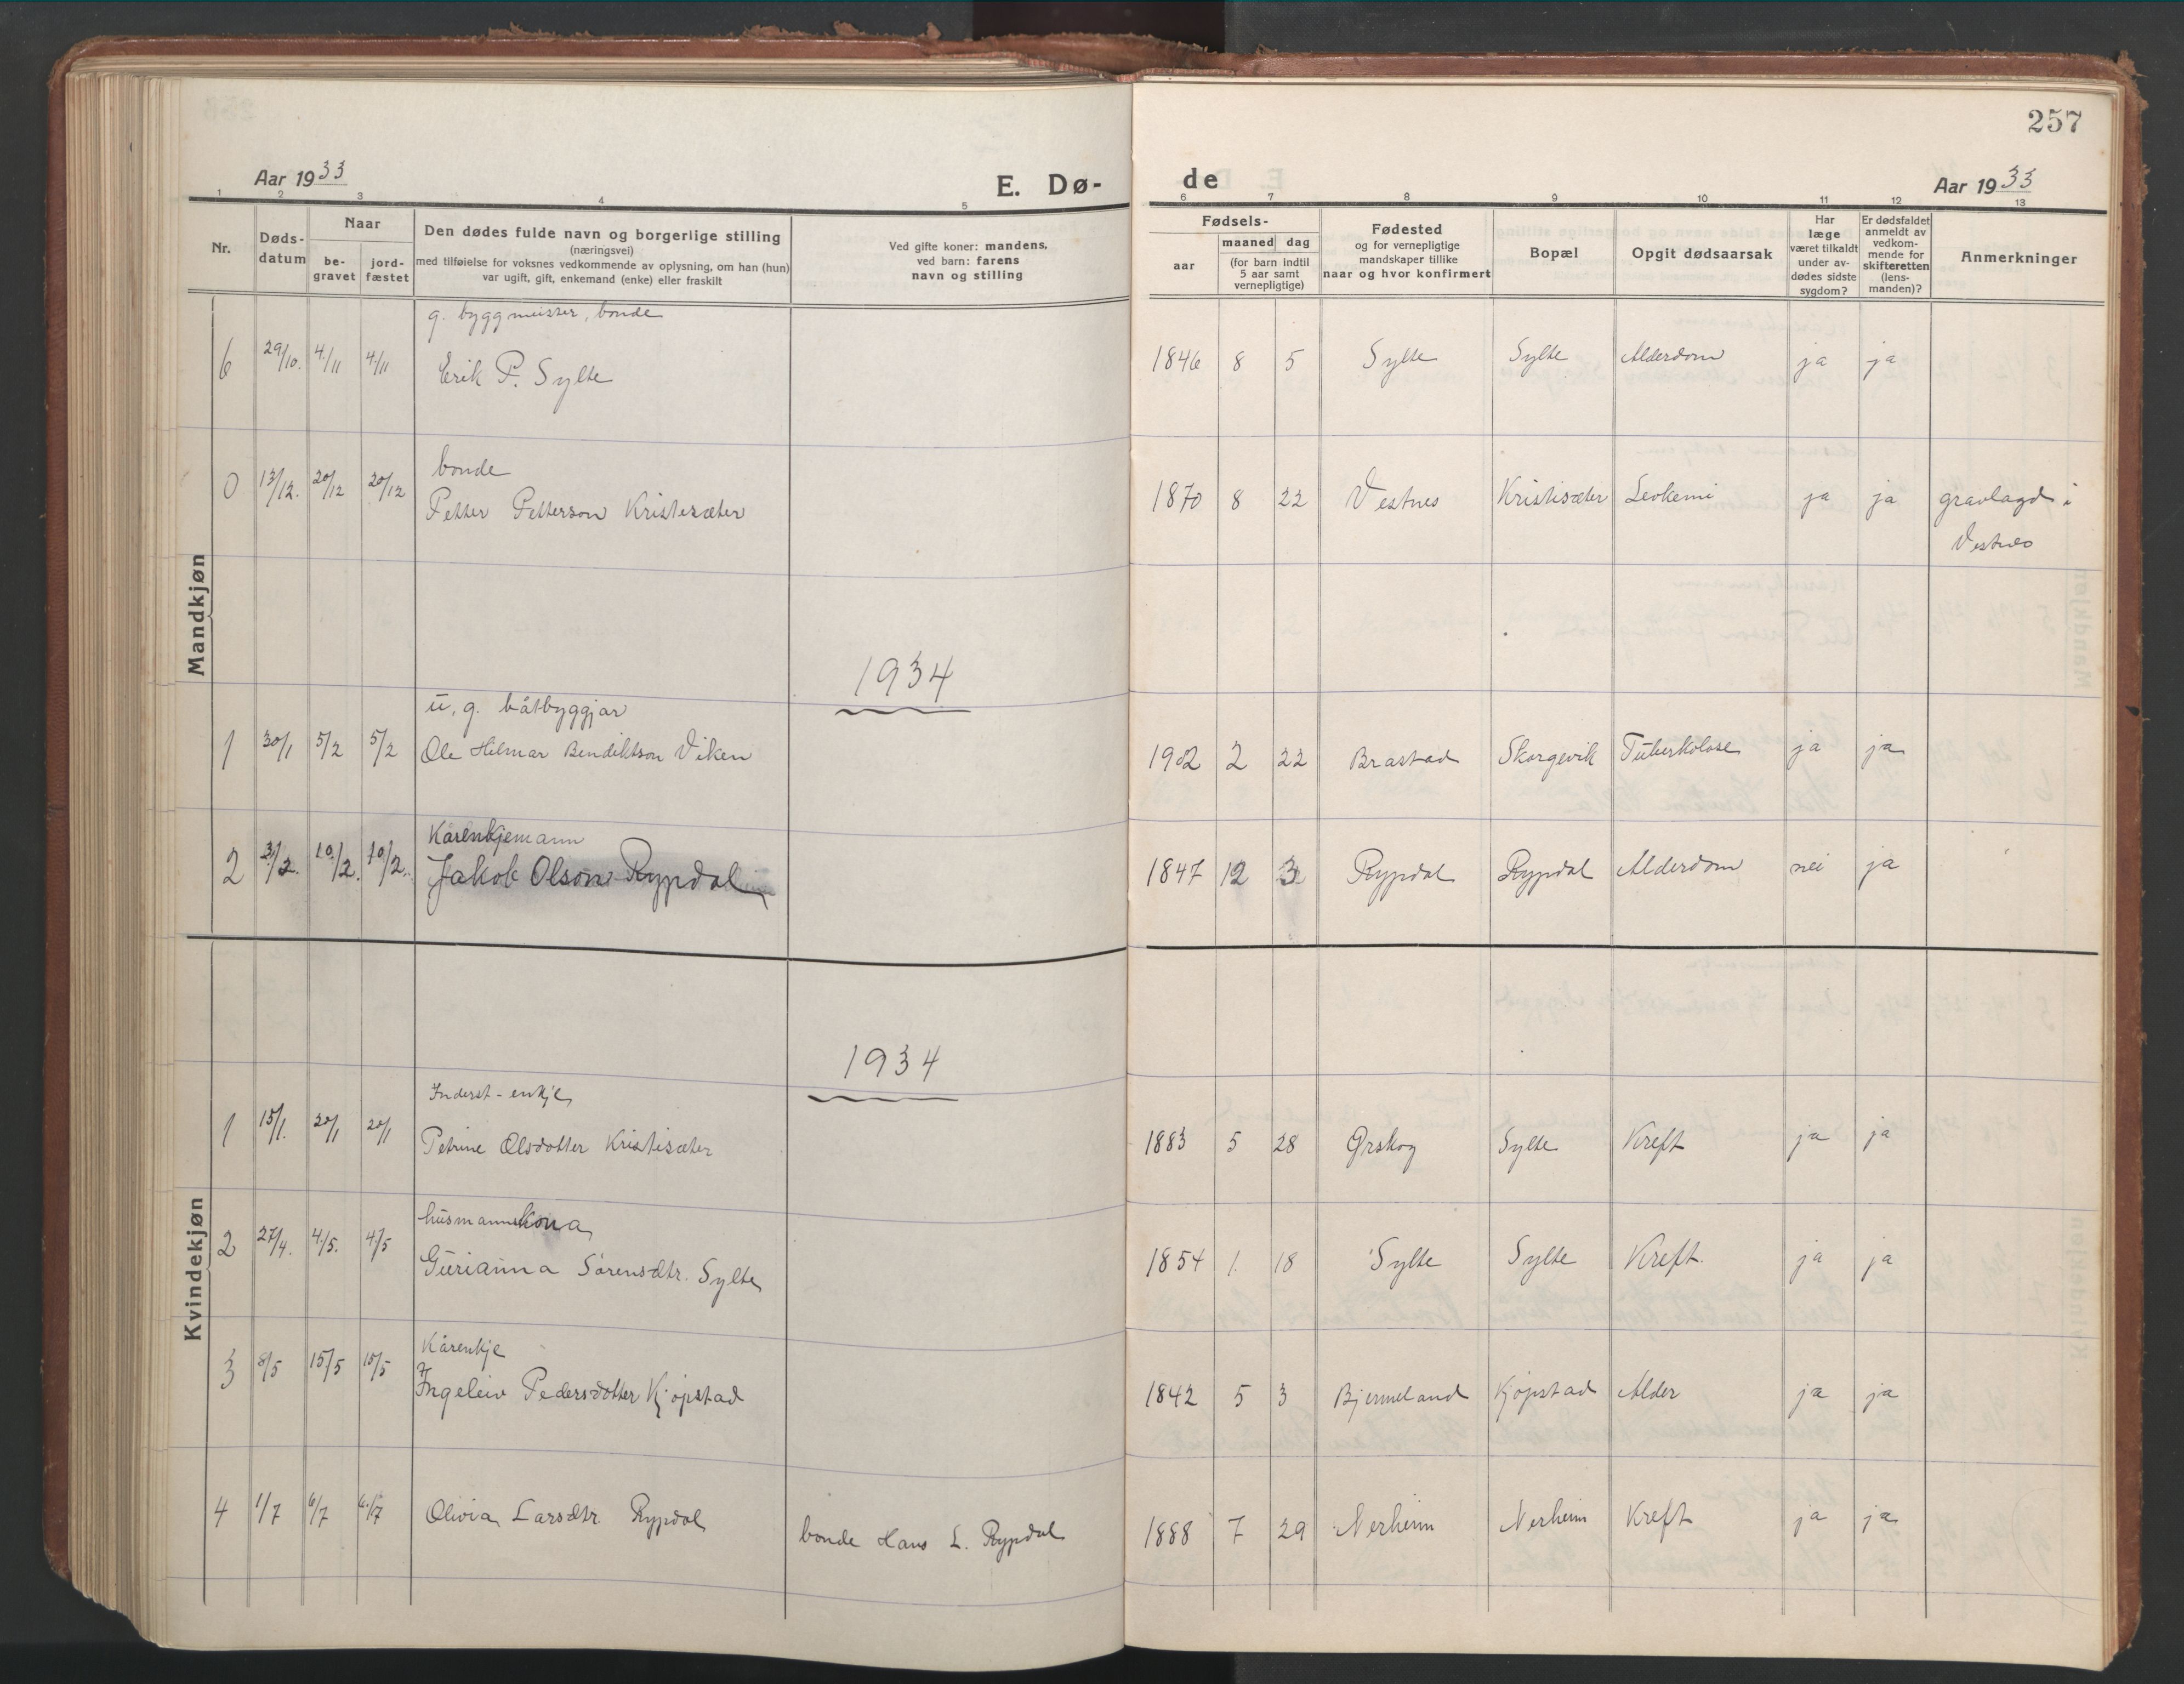 257
Aar 1933
E. Dø-
de
Aar 1933
1 2 3 4 5 6 7 8 9 10 11 12 13
Nr.
Døds-
datum
Naar
be-
gravet
jord-
fæstet
Den dødes fulde navn og borgerlige stilling
(næringsvei)
med tilføielse for voksnes vedkommende av oplysning, om han (hun)
var ugift, gift, enkemand (enke) eller fraskilt
Ved gifte koner: mandens,
ved barn: farens
navn og stilling
Fødsels-
aar
maaned dag
(for barn indtil
5 aar samt
vernepligtige)
Fødested
og for vernepligtige
mandskaper tillike
naar og hvor konfirmert
Bopæl
Opgit dødsaarsak
Har
læge
været tilkaldt
under av-
dødes sidste
sygdom?
Er dødsfaldet
anmeldt av
vedkom-
mende for
skifteretten
(lens-
manden)?
Anmerkninger
Mandkjøn
g. byggmeister, bonde
6 29/10. 4./11 4/11 Erik P. Sylte 1846 8 5 Sylte Sylte Alderdom ja ja
bonde
0 13/12. 20/12 20/12 Petter Petterson Kristesæter 1870 8 22 Vestnes Kristisæter Levkemi ja ja gravlagd i
Vestnes
1934
u. g. båtbyggjar
1 30/1 5/2 5/2 Ole Hilmar Bendiktson Viken 1902 2 22 Brastad Skorgevik Tuberkolose ja ja
Kårenkjemann
2 3/2. 10/2. 10/2. Jakob Olson Rypdal 1847 12 3 Rypdal Rypdal Alderdom nei ja
Kvindekjøn
1934
Inderst-enkje
1 15/1. 20/1 20/1 Petrine Olsdotter Kristisæter 1883 5 28 Ørskog Sylte Kreft ja ja
husmannskona
2 27/4. 4/5. 4/5 Gurianna Sørensdtr. Sylte 1854 1. 18 Sylte Sylte Kreft. ja ja
Kårenkje
3 8/5 15/5 15/5 Ingeleiv Pedersdotter Kjøpstad 1842 5 3 Bjermeland Kjøpstad Alder ja ja
4 1/7 6/7 6/7 Olivia Larsdtr Rypdal bonde Hans L. Rypdal 1888 7 29 Nerheim Nerheim Kreft ja ja